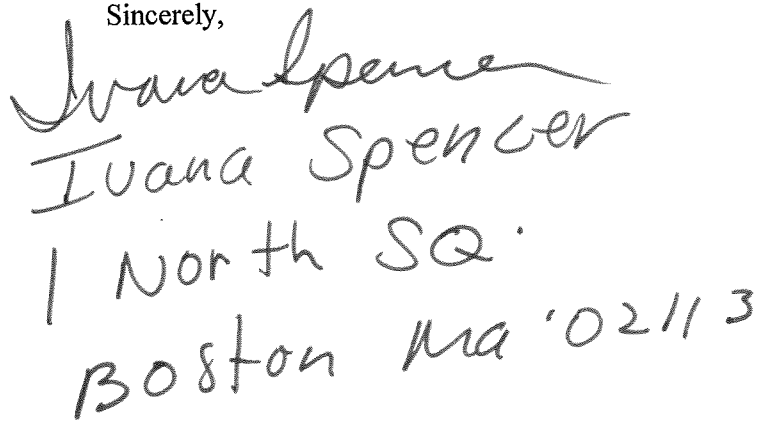 Sincerely,
Ivana Spencer
Ivana Spencer
1 North SQ.
Boston Ma. 02113